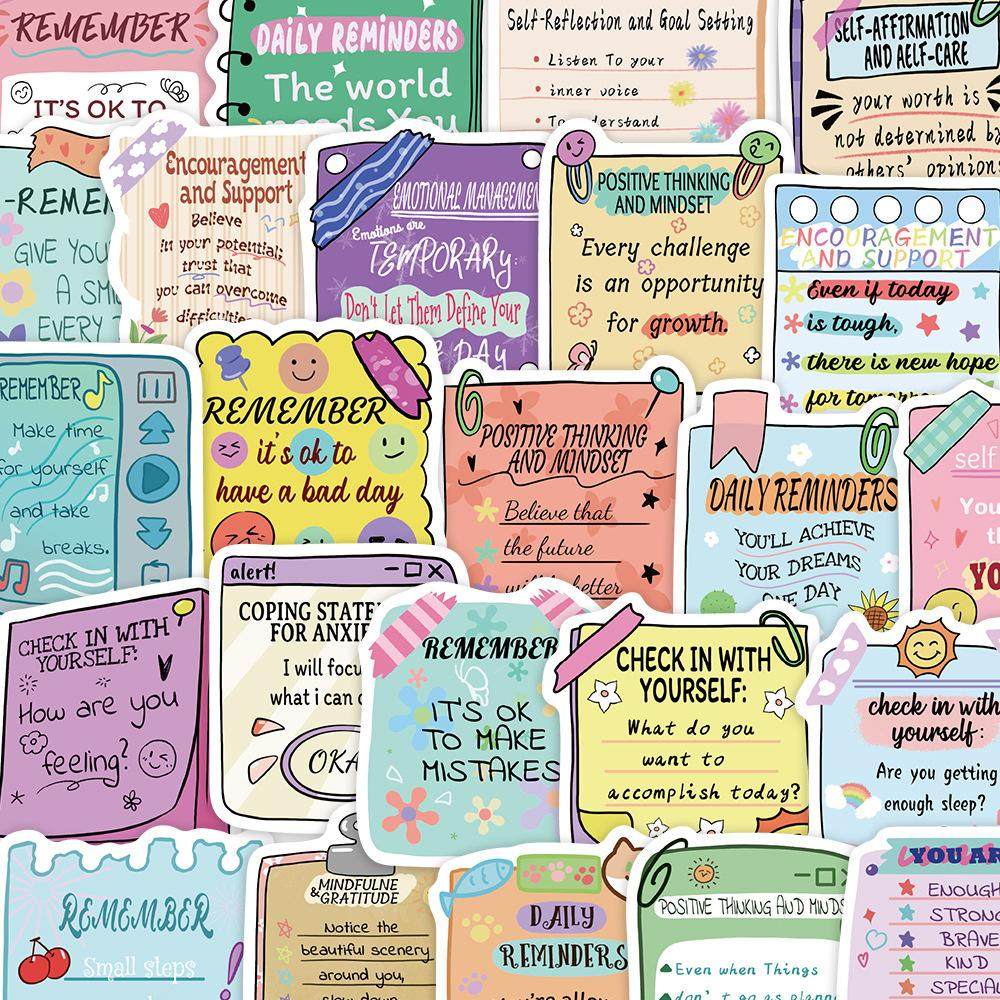 REMEMBER
IT'S OK TO
DAILY REMINDERS
The world
needs You
Self-Reflection and Goal Setting
Listen To your
inner voice
To understand
SELF-AFFIRMATION
AND AELF-CARE
your worth is
not determined by
others' opinions
-REMEM
GIVE YOU
A SMI
EVERY
Encouragement
and Support
Believe
in your potential;
trust that
you can overcome
difficulties
EMOTIONAL MANAGEMEN
Emotions are
TEMPORARY:
Don't Let Them Define Your
DAY
POSITIVE THINKING
AND MINDSET
Every challenge
is an opportunity
for growth.
ENCOURAGEMENT
AND SUPPORT
Even if today
is tough,
there is new hope
for tomorrow
REMEMBER
Make time
for yourself
and take
breaks.
REMEMBER
it's ok to
have a bad day
POSITIVE THINKING
AND MINDSET
Believe that
the future
will better
DAILY REMINDERS
YOU'LL ACHIEVE
YOUR DREAMS
ONE DAY
self
You
th
YO
CHECK IN WITH
YOURSELF:
How are you
feeling?
alert!
COPING STATE
FOR ANXIE
I will focu
what i can c
OKA
REMEMBER
IT'S OK
TO MAKE
MISTAKES
CHECK IN WITH
YOURSELF:
What do you
want to
accomplish today?
check in with
yourself:
Are you getting
enough sleep?
REMEMBER
Small steps
MINDFULNE
&GRATITUDE
Notice the
beautiful scenery
around you,
slow down
DAILY
REMINDERS
you're allow
POSITIVE THINKING AND MINDS
Even when Things
don't go as planne
YOU AR
ENOUGH
STRONG
BRAVE
KIND
SPECIAL